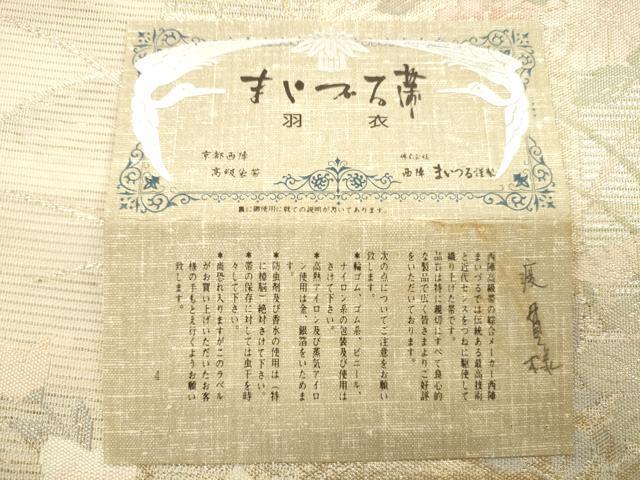 まいづる帯
羽衣
京都西陣
高級袋帯
株式会社
西陣 まいづる謹製
裏に御使用に就ての説明が書いてあります。
西陣高級帯の綜合メーカー西陣
まいづるでは伝統ある最高技術
と近代センスをつねに駆使して
織り上げた帯です。
品質は特に親切にすべて良心的
な製品で広く皆さまよりご好評
をいただいております。
次の点についてご注意をお願い
致します。
*輪ゴム、ゴム糸、ビニール、
ナイロン系の包装及び使用は
さけて下さい。
*高熱アイロン及び蒸気アイロ
ン使用は金、銀箔をいためま
す。
*防虫剤及び香水の使用は(特
に樟脳)絶対さけて下さい。
*帯の保存に対しては虫干を時
々して下さい。
*尚恐れ入りますがこのラベル
がお買い上げいただいたお客
様の手もとえ行くようお願い
致します。
様